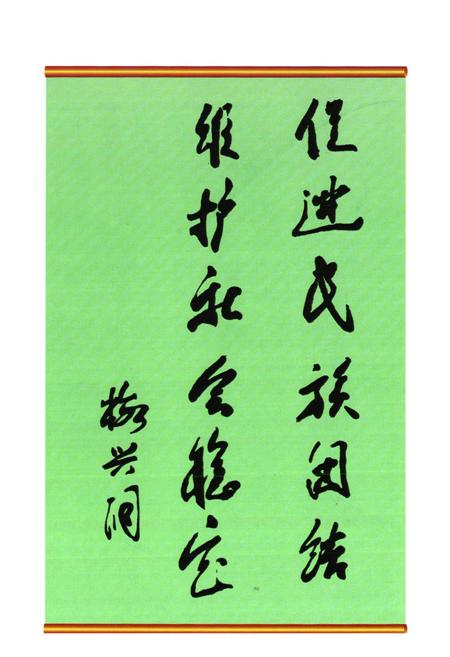 促进民族团结
维护社会稳定
梅兴润